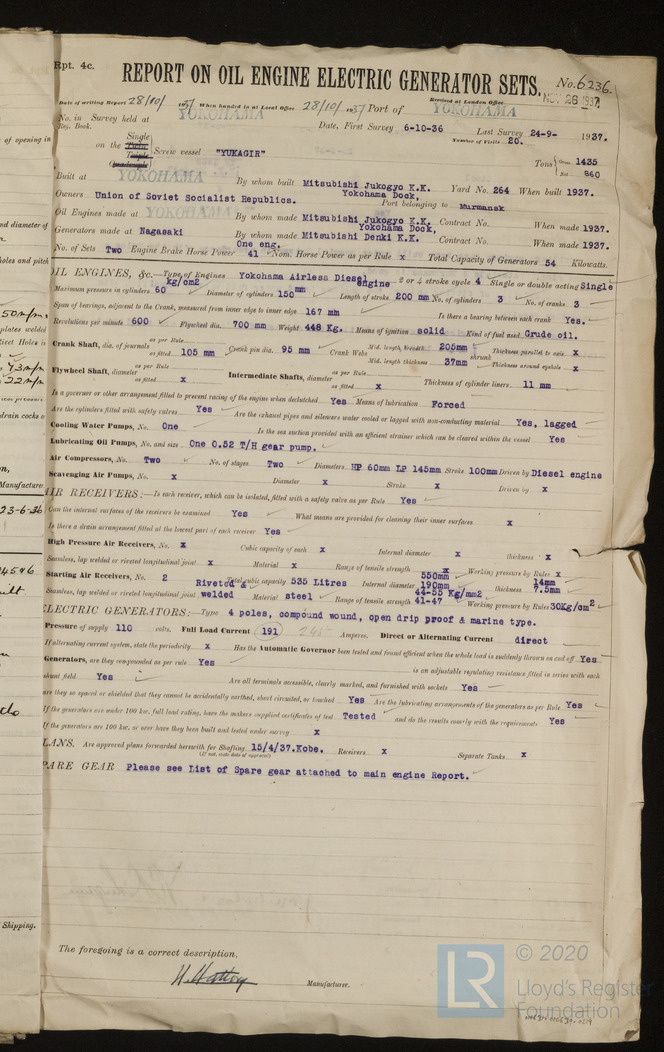 Rpt. 4c.
REPORT ON OIL ENGINE ELECTRIC GENERATOR SETS.
No. 6236.
NOV 26 1937
Date of writing Report 28/10/ 1937 When handed in at Local Office 28/10/ 1937 Port of YOKOHAMA
Received at London Office
No. in Survey held at YOKOHAMA Date, First Survey 6-10-36 Last Survey 24-9- 1937.
Reg. Book. Number of Visits 20.
on the Single Twin Triple Quadruple Screw vessel "YUKAGIR" Tons Gross 1435 Net 860
Built at YOKOHAMA By whom built Mitsubishi Jukogyo K.K. Yokohama Dock, Yard No. 264 When built 1937.
Owners Union of Soviet Socialist Republics. Port belonging to Murmansk
Oil Engines made at YOKOHAMA By whom made Mitsubishi Jukogyo K.K. Yokohama Dock, Contract No. When made 1937.
Generators made at Nagasaki By whom made Mitsubishi Denki K.K. Contract No. When made 1937.
No. of Sets Two Engine Brake Horse Power One eng. 41 Nom. Horse Power as per Rule x Total Capacity of Generators 54 Kilowatts.
OIL ENGINES, &c.—Type of Engines Yokohama Airless Diesel engine 2 or 4 stroke cycle 4 Single or double acting Single
Maximum pressure in cylinders 60 kg/cm2 Diameter of cylinders 150 mm Length of stroke 200 mm No. of cylinders 3 No. of cranks 3
Span of bearings, adjacent to the Crank, measured from inner edge to inner edge 167 mm Is there a bearing between each crank Yes.
Revolutions per minute 600 Flywheel dia. 700 mm Weight 448 Kg. Means of ignition solid Kind of fuel used Crude oil.
Crank Shaft, dia. of journals as per Rule as fitted 105 mm Crank pin dia. 95 mm Crank Webs Mid. length breadth 205mm Mid. length thickness 37mm shrunk Thickness parallel to axis x Thickness around eyehole x
Flywheel Shaft, diameter as per Rule as fitted x Intermediate Shafts, diameter as per Rule as fitted x Thickness of cylinder liners 11 mm
Is a governor or other arrangement fitted to prevent racing of the engine when declutched Yes Means of lubrication Forced
Are the cylinders fitted with safety valves Yes Are the exhaust pipes and silencers water cooled or lagged with non-conducting material Yes, lagged
Cooling Water Pumps, No. One Is the sea suction provided with an efficient strainer which can be cleared within the vessel Yes
Lubricating Oil Pumps, No. and size One 0.52 T/H gear pump.
Air Compressors, No. Two No. of stages Two Diameters HP 60mm LP 145mm Stroke 100mm Driven by Diesel engine
Scavenging Air Pumps, No. x Diameter x Stroke x Driven by x
AIR RECEIVERS:—Is each receiver, which can be isolated, fitted with a safety valve as per Rule Yes
Can the internal surfaces of the receivers be examined Yes What means are provided for cleaning their inner surfaces x
Is there a drain arrangement fitted at the lowest part of each receiver Yes
High Pressure Air Receivers, No. x Cubic capacity of each x Internal diameter x thickness x
Seamless, lap welded or riveted longitudinal joint x Material x Range of tensile strength x Working pressure by Rules x
Starting Air Receivers, No. 2 Total cubic capacity 535 Litres Internal diameter 550mm 190mm thickness 14mm 7.5mm
Seamless, lap welded or riveted longitudinal joint Riveted & welded Material steel Range of tensile strength 44-55 Kg/mm2 41-47 Working pressure by Rules 30Kg/cm2
ELECTRIC GENERATORS:—Type 4 poles, compound wound, open drip proof & marine type.
Pressure of supply 110 volts. Full Load Current 191 245 Amperes. Direct or Alternating Current direct
If alternating current system, state the periodicity x Has the Automatic Governor been tested and found efficient when the whole load is suddenly thrown on and off Yes
Generators, are they compounded as per rule Yes is an adjustable regulating resistance fitted in series with each
shunt field Yes Are all terminals accessible, clearly marked, and furnished with sockets Yes
are they so spaced or shielded that they cannot be accidentally earthed, short circuited, or touched Yes Are the lubricating arrangements of the generators as per Rule Yes
If the generators are under 100 kw. full load rating, have the makers supplied certificates of test Tested and do the results comply with the requirements Yes
If the generators are 100 kw. or over have they been built and tested under survey x
PLANS. Are approved plans forwarded herewith for Shafting 15/4/37.Kobe. Receivers x Separate Tanks x
(If not, state date of approval)
SPARE GEAR Please see List of Spare gear attached to main engine Report.
The foregoing is a correct description,
Manufacturer.
of opening in
nd diameter of
holes and pitch
50m/m.
plates welded
43m/m
22m/m
drain cocks
Manufacturer
23-6-36
Shipping.
LR
© 2020
Lloyd's Register
Foundation